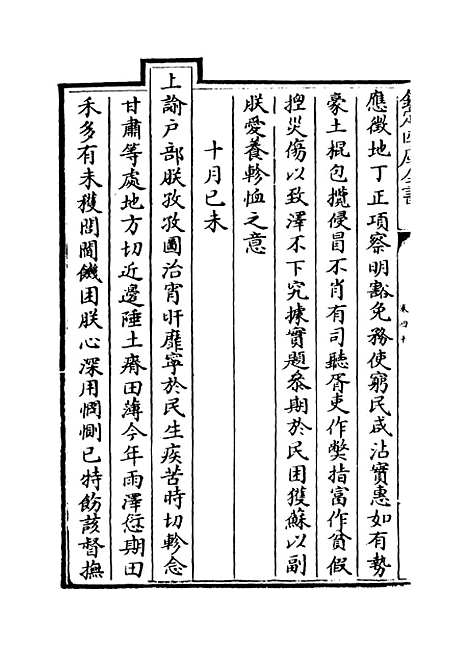 欽定四庫全書
卷四十
應徵地丁正項察明豁免務使窮民咸沾實惠如有勢
豪土棍包攬侵冒不肖有司聽胥吏作弊指富作貧假
捏災傷以致澤不下究據實題叅期於民困獲蘇以副
朕愛養軫恤之意
十月已未
上諭户部朕孜孜圖治宵旰靡寧於民生疾苦時切軫念
甘肅等處地方切近邊陲土瘠田薄今年雨澤愆期田
禾多有未穫閭閻饑困朕心深用惻已特飭該督撫